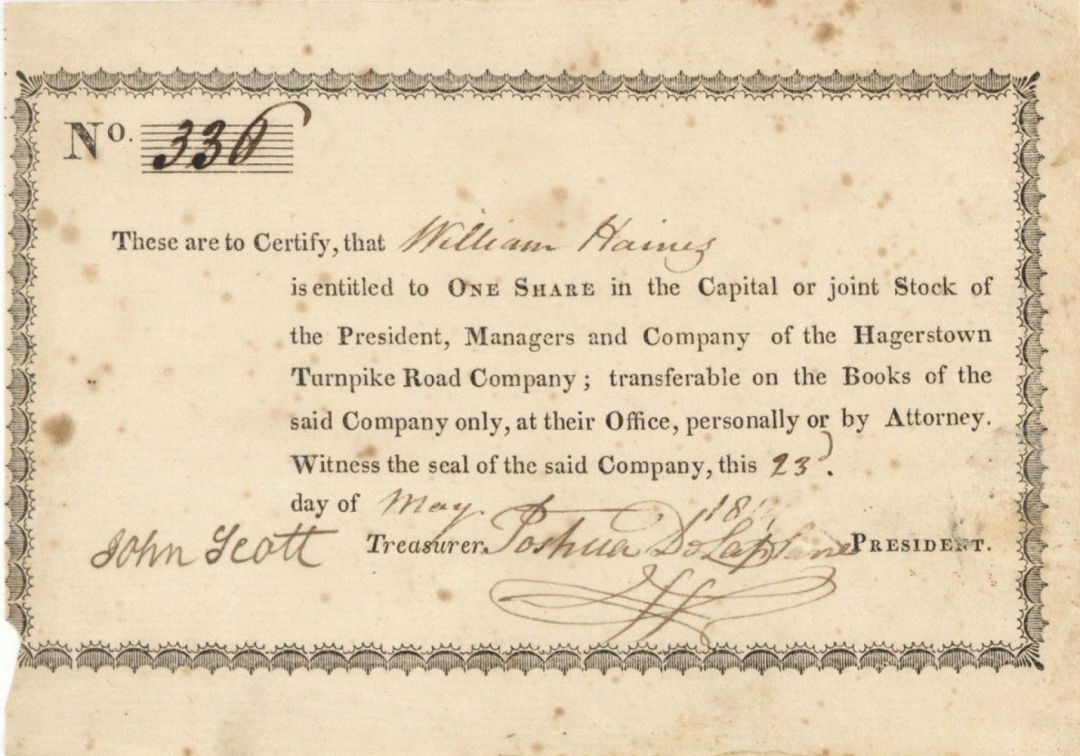 No. 336
These are to Certify, that William Haines
is entitled to ONE SHARE in the Capital or joint Stock of
the President, Managers and Company of the Hagerstown
Turnpike Road Company; transferable on the Books of the
said Company only, at their Office, personally or by Attorney.
Witness the seal of the said Company, this 23d.
day of May 181
John Scott Treasurer. Joshua PRESIDENT.